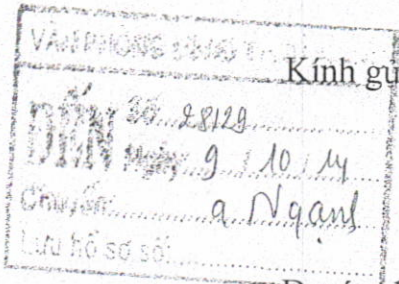 VĂN PHÒNG
Kính gư
ĐẾN Số 28129
Ngày 9 / 10 / 14
Chuyển: a Ngạnh
Lưu hồ sơ số: